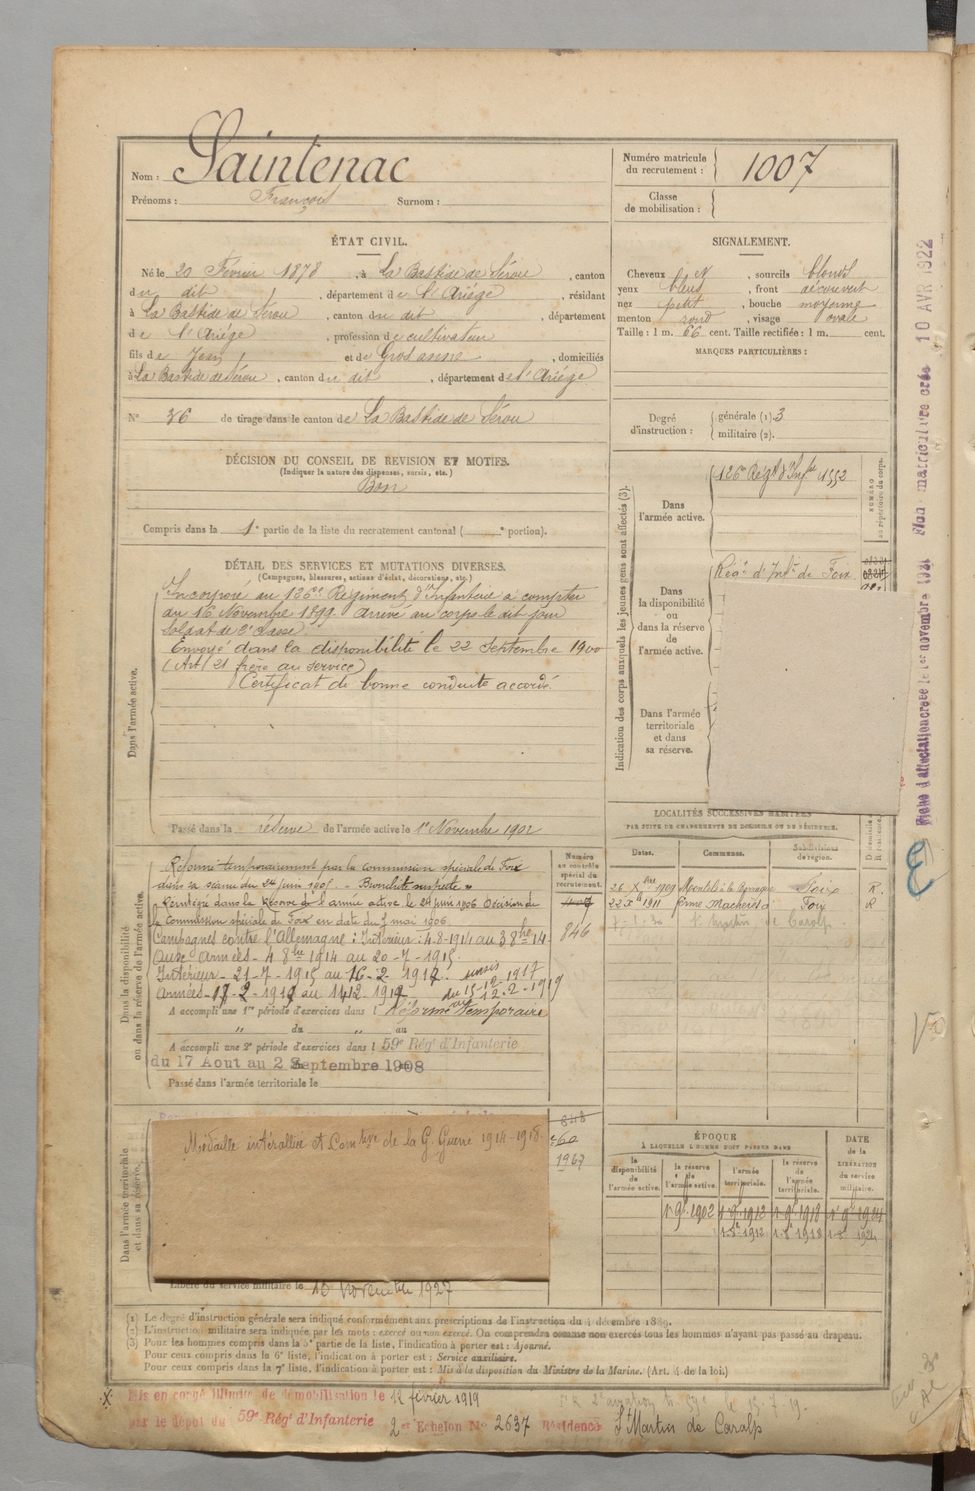 Nom : Saintenac
Prénoms : François Surnom :
Numéro matricule du recrutement : 1007
Classe de mobilisation :
ÉTAT CIVIL.
Né le 20 Février 1878, à La Bastide de Sérou, canton
du dit, département de l'Ariége, résidant
à La Bastide de Sérou, canton du dit, département
de l'Ariége, profession de cultivateur
fils de Jean et de Gros anne, domiciliés
à La Bastide de Sérou, canton du dit, département de l'Ariége
N° 36 de tirage dans le canton de La Bastide de Sérou
SIGNALEMENT.
Cheveux, sourcils blonds
yeux bleus, front découvert
nez petit, bouche moyenne
menton rond, visage ovale
Taille : 1 m. 66 cent. Taille rectifiée : 1 m. cent.
MARQUES PARTICULIÈRES :
Degré d'instruction : générale (1). 3
militaire (2).
DÉCISION DU CONSEIL DE REVISION ET MOTIFS.
(Indiquer la nature des dispenses, sursis, etc.)
Bon
Compris dans la 1e partie de la liste du recrutement cantonal ( e portion).
DÉTAIL DES SERVICES ET MUTATIONS DIVERSES.
(Campagnes, blessures, actions d'éclat, décorations, etc.)
Dans l'armée active.
Incorporé au 126e Régiment d'Infanterie à compter
du 16 Novembre 1899 arrivé au corps le dit jour
Soldat de 2e classe
Envoyé dans la disponibilité le 22 Septembre 1900
(Art 21 frère au service)
Certificat de bonne conduite accordé.
Passé dans la réserve de l'armée active le 1er Novembre 1902
Indication des corps auxquels les jeunes gens sont affectés (3).
NUMÉRO au répertoire du corps.
Dans l'armée active.
126e Régt d'Infie 1552
Dans la disponibilité ou dans la réserve de l'armée active.
Régt d'Infie de Foix
Dans l'armée territoriale et dans sa réserve.
Dans la disponibilité ou dans la réserve de l'armée active.
Réformé temporairement par la Commission spéciale de Foix
dans sa séance du 24 juin 1905 - Bronchite suspecte »
Réintégré dans la Réserve de l'armée active le 24 juin 1906 Décision de
la Commission spéciale de Foix en date du 7 mai 1906
Campagnes contre l'Allemagne : Intérieur : 4-8-1914 au 3 8bre 14
Aux Armées - 4 8bre 1914 au 20-7-1915.
Intérieur - 21-7-1915 au 16-2-1917
Armées - 17-2-1917 au 14-12-1917
A accompli une 1re période d'exercices dans l Réforme temporaire
" du " au
A accompli une 2e période d'exercices dans l 59e Régt d'Infanterie
du 17 Aout au 2 Septembre 1908
Passé dans l'armée territoriale le
Numéro au contrôle spécial du recrutement.
846
LOCALITÉS SUCCESSIVES HABITÉES
PAR SUITE DE CHANGEMENTS DE DOMICILE OU DE RÉSIDENCE.
Dates. Communes. Subdivisions de région.
26 Xbre 1909 Foix R.
22 Xbre 1911 Foix R
Dans l'armée territoriale et dans sa réserve.
Médaille interalliée et Comtive de la G. Guerre 1914-1918.
1967
Libéré du service militaire le 10 Novembre 1927
ÉPOQUE
À LAQUELLE L'HOMME DOIT PASSER DANS
la disponibilité de l'armée active. la réserve de l'armée active. l'armée territoriale. la réserve de l'armée territoriale. DATE de la LIBÉRATION du service militaire.
1-9bre 1902 1-9bre 1912 1-9bre 1918
(1) Le degré d'instruction générale sera indiqué conformément aux prescriptions de l'instruction du 4 décembre 1889.
(2) L'instruction militaire sera indiquée par les mots : exercé ou non exercé. On comprendra comme non exercés tous les hommes n'ayant pas passé au drapeau.
(3) Pour les hommes compris dans la 5e partie de la liste, l'indication à porter est : Ajourné.
Pour ceux compris dans la 6e liste, l'indication à porter est : Service auxiliaire.
Pour ceux compris dans la 7e liste, l'indication à porter est : Mis à la disposition du Ministre de la Marine. (Art. 4 de la loi.)
Mis en congé illimité de démobilisation le 12 février 1919
par le dépôt du 59e Régt d'Infanterie 2e Echelon No 2637 Résidence St Martin de Caralp
10 AVR 1922